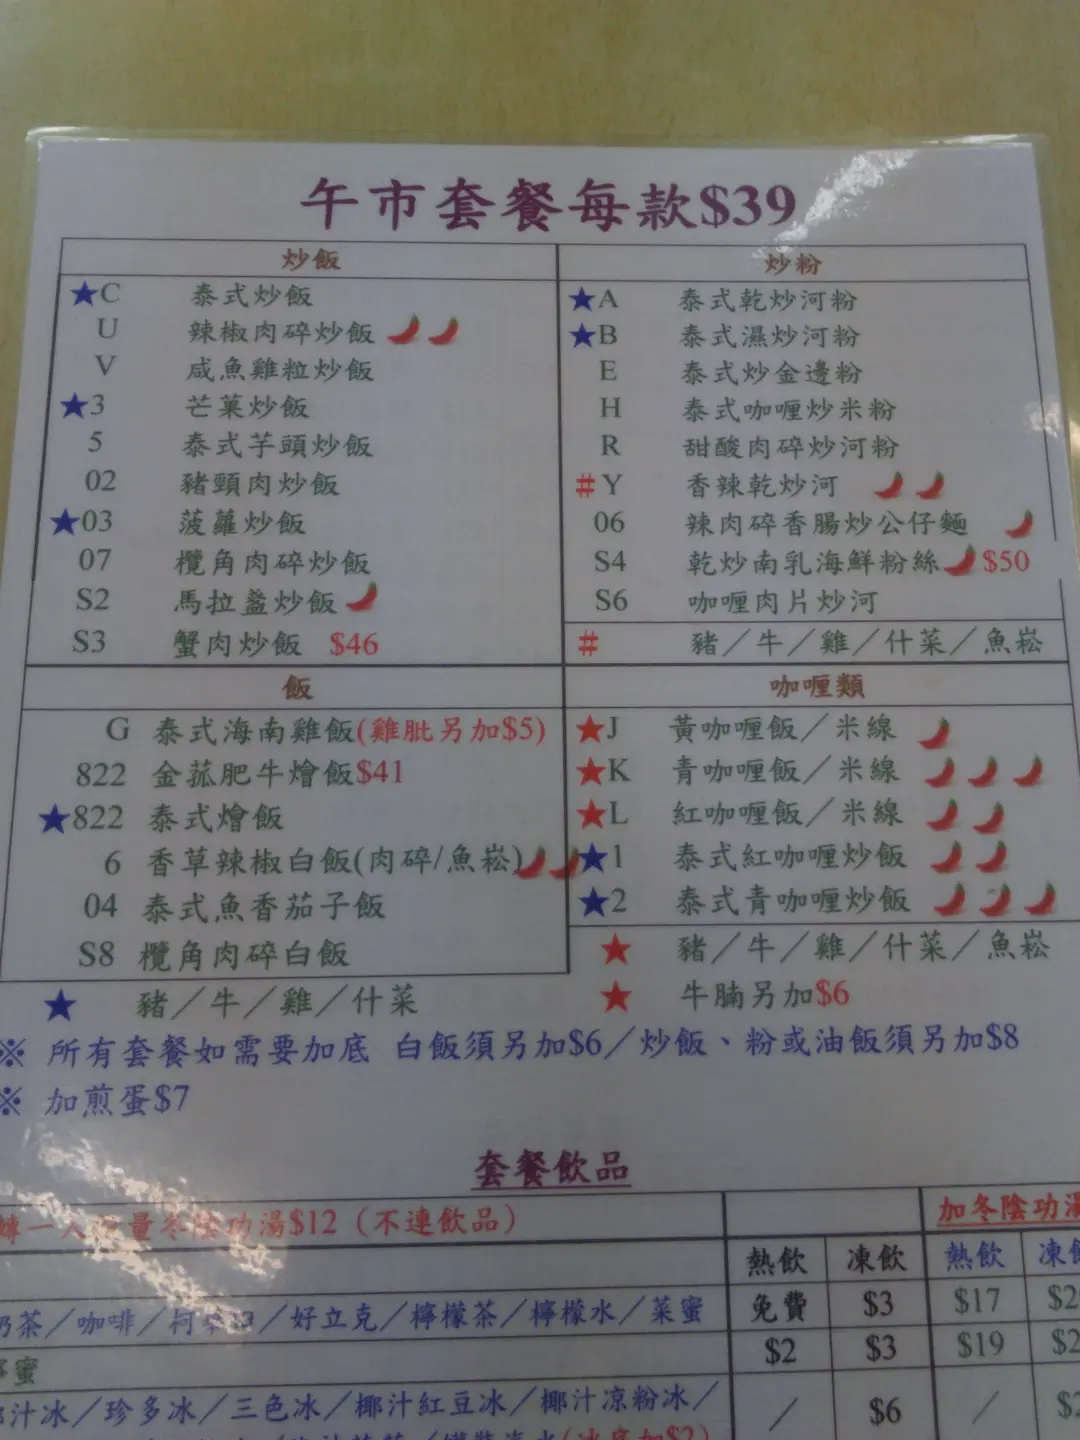 午市套餐每款$39
炒飯
★C 泰式炒飯
U 辣椒肉碎炒飯
V 咸魚雞粒炒飯
★3 芒菓炒飯
5 泰式芋頭炒飯
02 豬頸肉炒飯
★03 菠蘿炒飯
07 欖角肉碎炒飯
S2 馬拉盞炒飯
S3 蟹肉炒飯 $46
炒粉
★A 泰式乾炒河粉
★B 泰式濕炒河粉
E 泰式炒金邊粉
H 泰式咖喱炒米粉
R 甜酸肉碎炒河粉
#Y 香辣乾炒河
06 辣肉碎香腸炒公仔麵
S4 乾炒南乳海鮮粉絲 $50
S6 咖喱肉片炒河
# 豬／牛／雞／什菜／魚崧
飯
G 泰式海南雞飯(雞肶另加$5)
822 金菰肥牛燴飯$41
★822 泰式燴飯
6 香草辣椒白飯(肉碎/魚崧)
04 泰式魚香茄子飯
S8 欖角肉碎白飯
★ 豬／牛／雞／什菜
咖喱類
★J 黃咖喱飯／米線
★K 青咖喱飯／米線
★L 紅咖喱飯／米線
★1 泰式紅咖喱炒飯
★2 泰式青咖喱炒飯
★ 豬／牛／雞／什菜／魚崧
★ 牛腩另加$6
※ 所有套餐如需要加底 白飯須另加$6／炒飯、粉或油飯須另加$8
※ 加煎蛋$7
套餐飲品
轉一人 量冬陰功湯$12（不連飲品）
加冬陰功湯
熱飲 凍飲 熱飲 凍飲
奶茶／咖啡／ ／好立克／檸檬茶／檸檬水／菜蜜 免費 $3 $17
蜜 $2 $3 $19
汁冰／珍多冰／三色冰／椰汁紅豆冰／椰汁凉粉冰／ ／ $6 ／